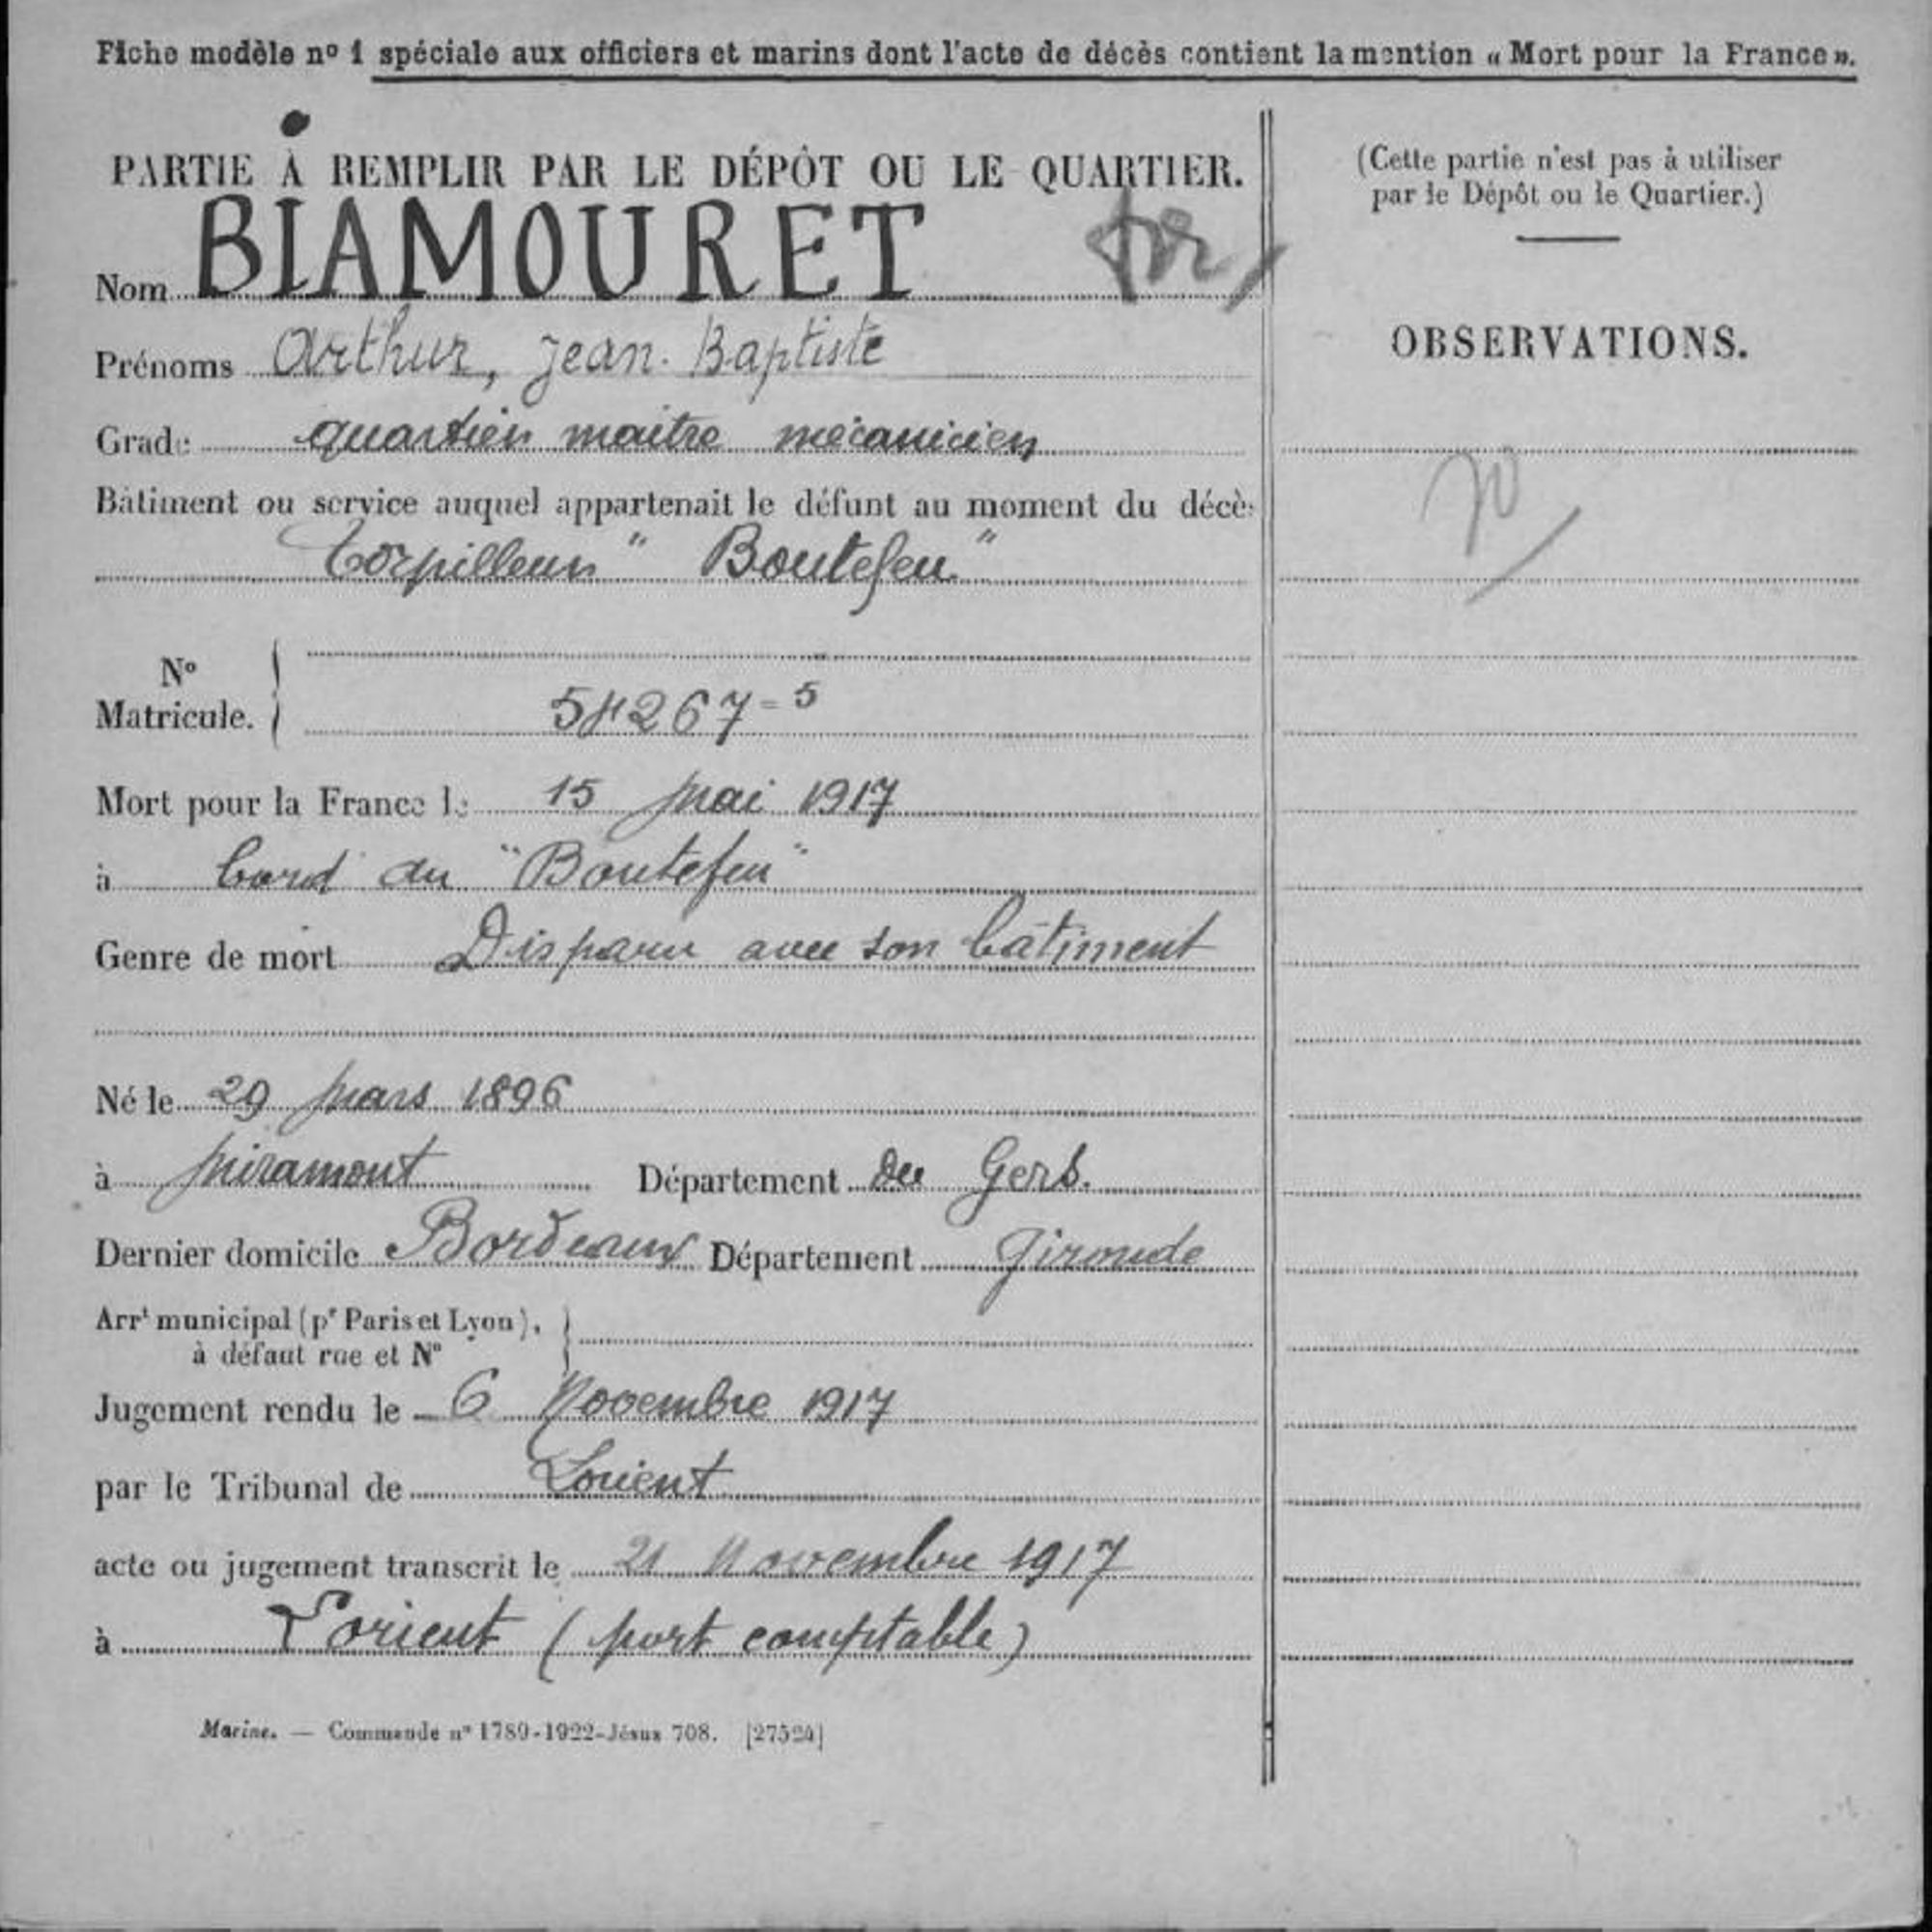 Fiche modèle nº 1 spéciale aux officiers et marins dont l'acte de décès contient la mention « Mort pour la France ».
PARTIE À REMPLIR PAR LE DÉPÔT OU LE QUARTIER.
Nom BIAMOURET
Prénoms Arthur, Jean-Baptiste
Grade quartier maitre mécanicien
Bâtiment ou service auquel appartenait le défunt au moment du décès
Torpilleur "Boutefeu"
Nº
Matricule. 54267-5
Mort pour la France le 15 Mai 1917
à bord du "Boutefeu"
Genre de mort Disparu avec son bâtiment
Né le 29 Mars 1896
à Miramont Département du Gers.
Dernier domicile Bordeaux Département Gironde
Arrt municipal (pr Paris et Lyon),
à défaut rue et Nº
Jugement rendu le 6 Novembre 1917
par le Tribunal de Lorient
acte ou jugement transcrit le 21 Novembre 1917
à Lorient (port comptable)
Marine. — Commande nº 1789-1922-Jésus 708. [27524]
(Cette partie n'est pas à utiliser
par le Dépôt ou le Quartier.)
OBSERVATIONS.